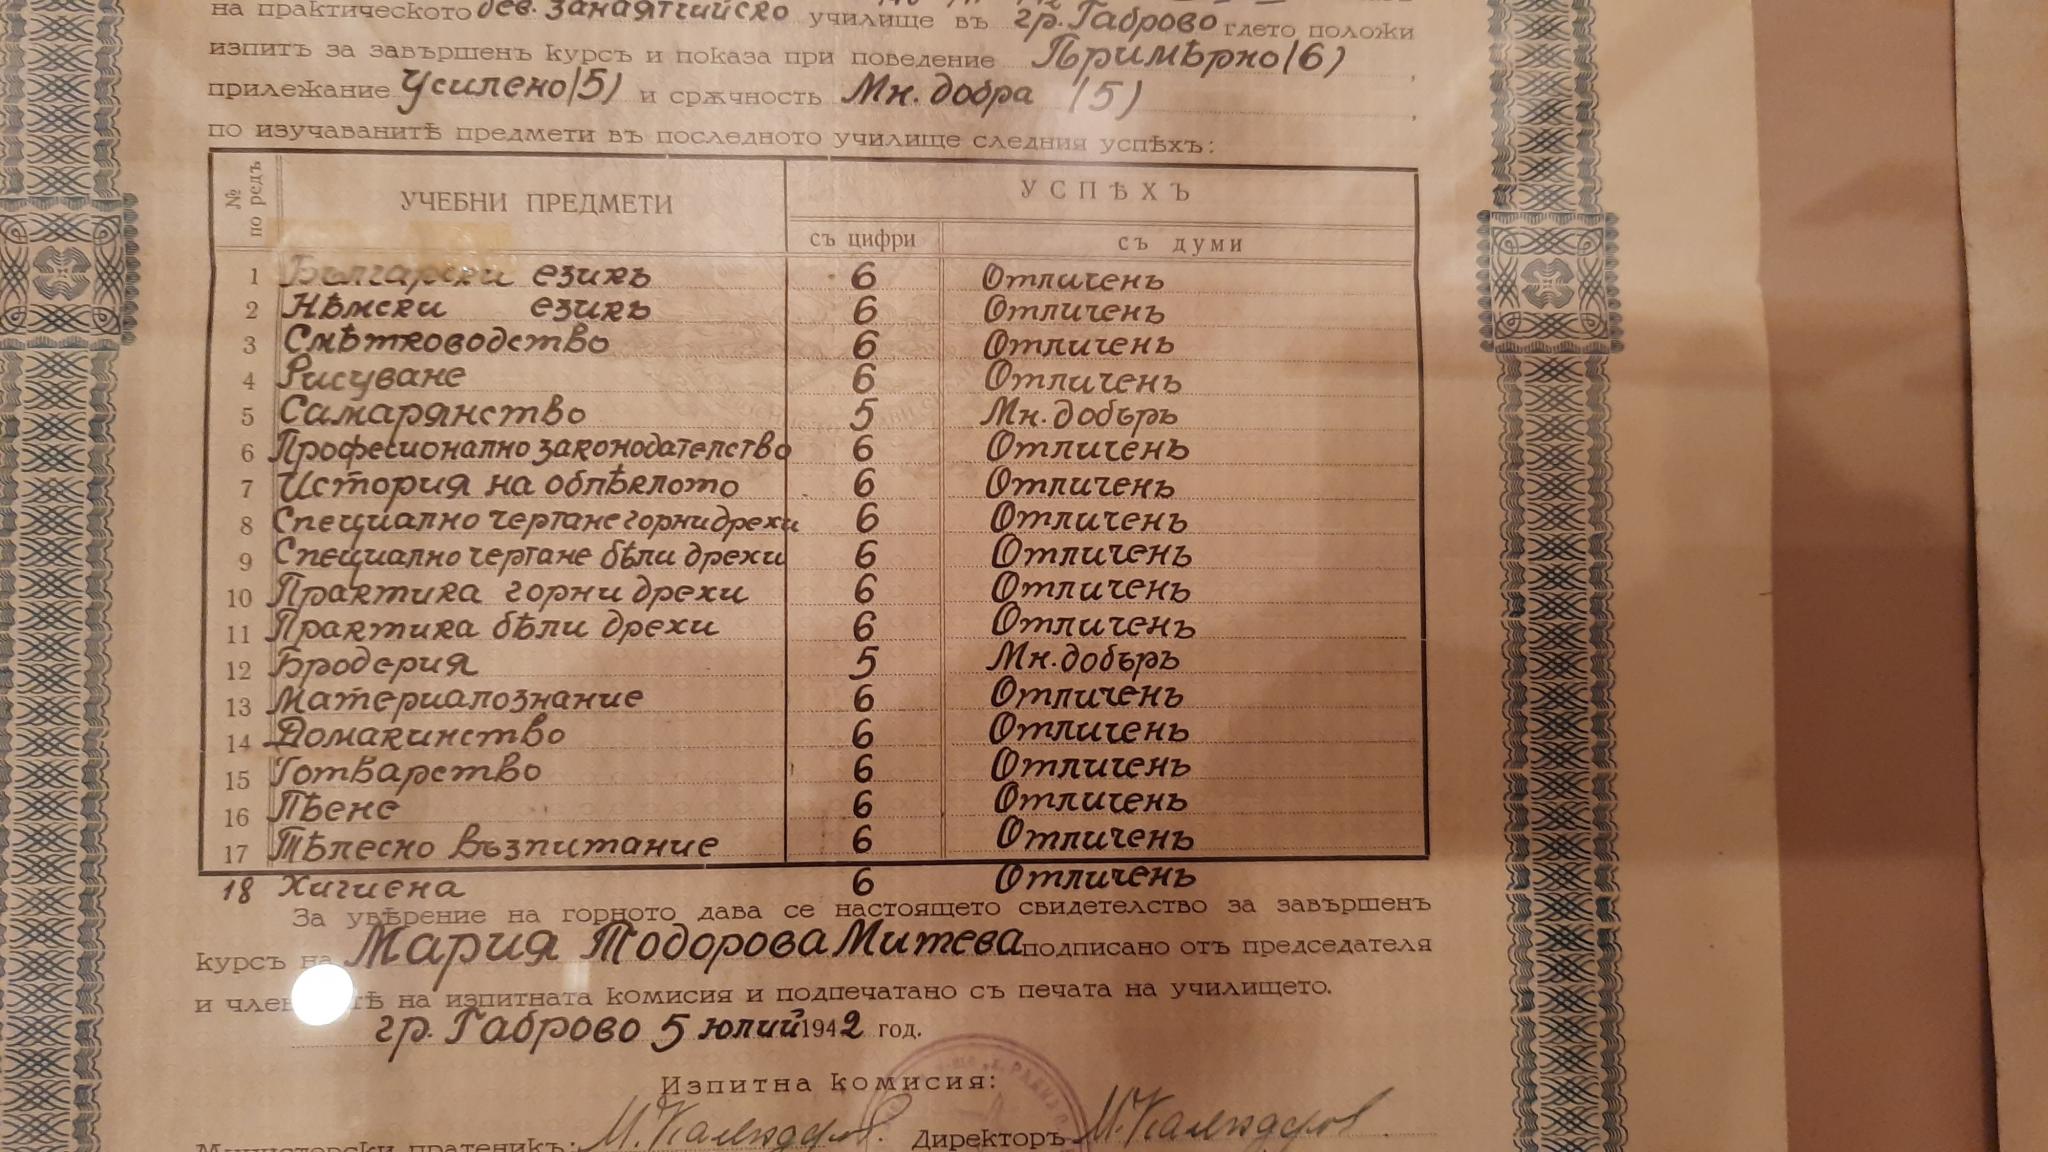 на практическото дев. занаятчийско училище въ гр. Габрово гдето положи
изпитъ за завършенъ курсъ и показа при поведение Примѣрно (6) ,
прилежание Усилено (5) и срѫчность Мн. добра (5) ,
по изучаванитѣ предмети въ последното училище следния успѣхъ:
№ по редъ УЧЕБНИ ПРЕДМЕТИ УСПѢХЪ
съ цифри съ думи
1 Български езикъ 6 Отличенъ
2 Нѣмски езикъ 6 Отличенъ
3 Смѣтководство 6 Отличенъ
4 Рисуване 6 Отличенъ
5 Самарянство 5 Мн. добъръ
6 Професионално законодателство 6 Отличенъ
7 История на облѣклото 6 Отличенъ
8 Специално чертане горни дрехи 6 Отличенъ
9 Специално чертане бѣли дрехи 6 Отличенъ
10 Практика горни дрехи 6 Отличенъ
11 Практика бѣли дрехи 6 Отличенъ
12 Бродерия 5 Мн. добъръ
13 Материалознание 6 Отличенъ
14 Домакинство 6 Отличенъ
15 Готварство 6 Отличенъ
16 Пѣене 6 Отличенъ
17 Тѣлесно възпитание 6 Отличенъ
18 Хигиена 6 Отличенъ
За увѣрение на горното дава се настоящето свидетелство за завършенъ
курсъ на Мария Тодорова Митева подписано отъ председателя
и членоветѣ на изпитната комисия и подпечатано съ печата на училището.
гр. Габрово 5 юлий 1942 год.
Изпитна комисия:
Министерски пратеникъ: М. Календеров. Директоръ М. Календеров.